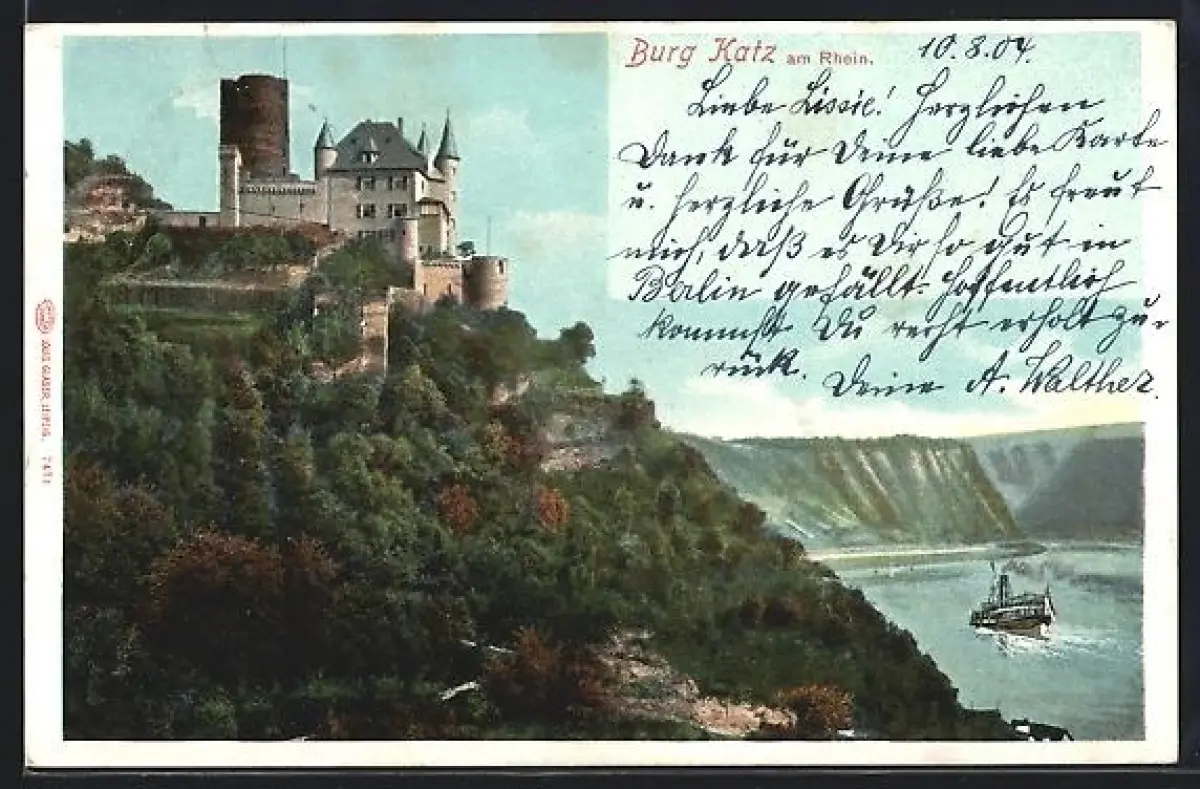 Burg Katz am Rhein.
10.8.04.
Liebe Lissie! Herzlichen
Dank für Deine liebe Karte
u. herzliche Grüße! Es freut
mich, daß es Dir so gut in
Berlin gefällt. Hoffentlich
kommst Du recht erholt zu-
rück.
Deine A. Walther.
LOUIS GLASER, LEIPZIG.